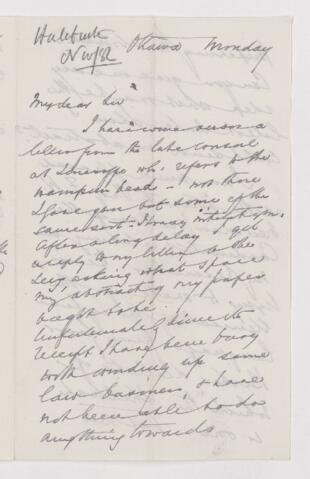 Nov/82
Ottawa Monday
My dear Sir
I have come across a
letter from the late Consul
at wh. refers to the
wampum beads - not those
I gave you but some of the
same sort - It may interest you.
After a long delay I get
a reply to my letter to the
Secy asking what space
my abstract of my paper
ought to be.
Unfortunately since its
receipt I have been busy
with winding up some
law business, & have
not been able to do
anything towards